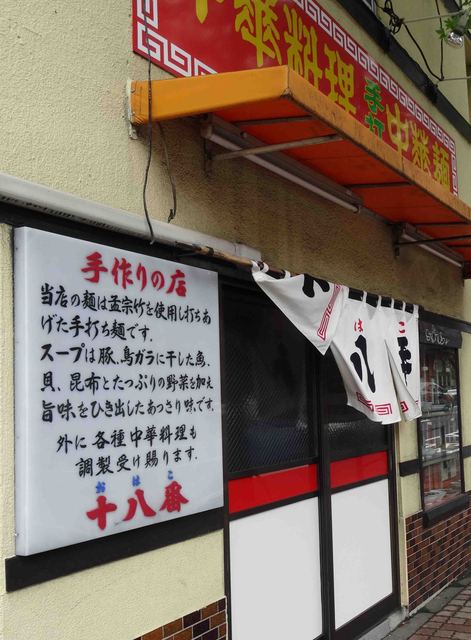 中華料理
手打
中華麺
手作りの店
当店の麺は孟宗竹を使用し打ちあ
げた手打ち麺です.
スープは豚、鳥ガラに干した魚、
貝、昆布とたっぷりの野菜を加え
旨味をひき出したあっさり味です.
外に各種中華料理も
調製受け賜ります.
おはこ
十八番
は こ
八 番